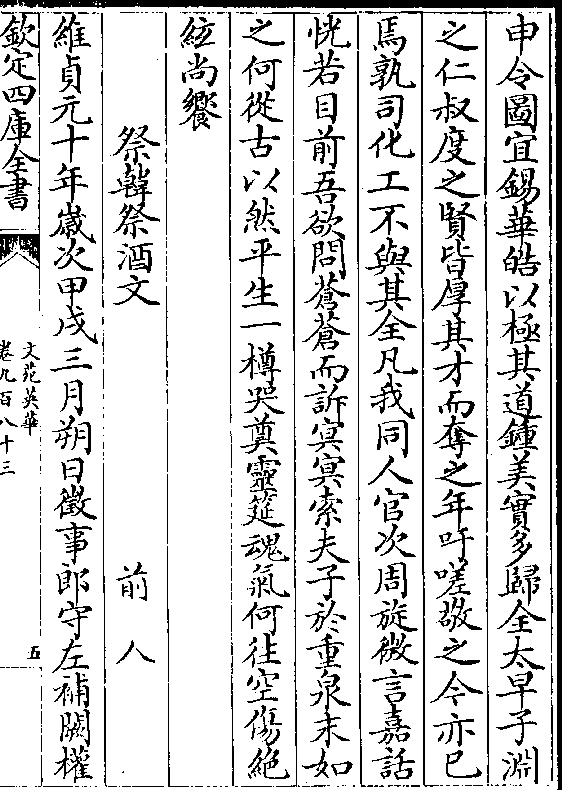 申令圖宜錫華皓以極其道鍾美實多歸全太早子淵
之仁叔度之賢皆厚其才而奪之年吁嗟敬之今亦已
焉孰司化工不與其全凡我同人官次周旋微言嘉話
恍若目前吾欲問蒼蒼而訴冥冥索夫子於重泉末如
之何從古以然平生一樽哭奠靈筵魂氣何往空傷絶
絃尚饗
祭韓祭酒文 前人
維貞元十年嵗次甲戌三月朔日徵事郎守左補闕權
欽定四庫全書
文苑英華
卷九百八十三
五